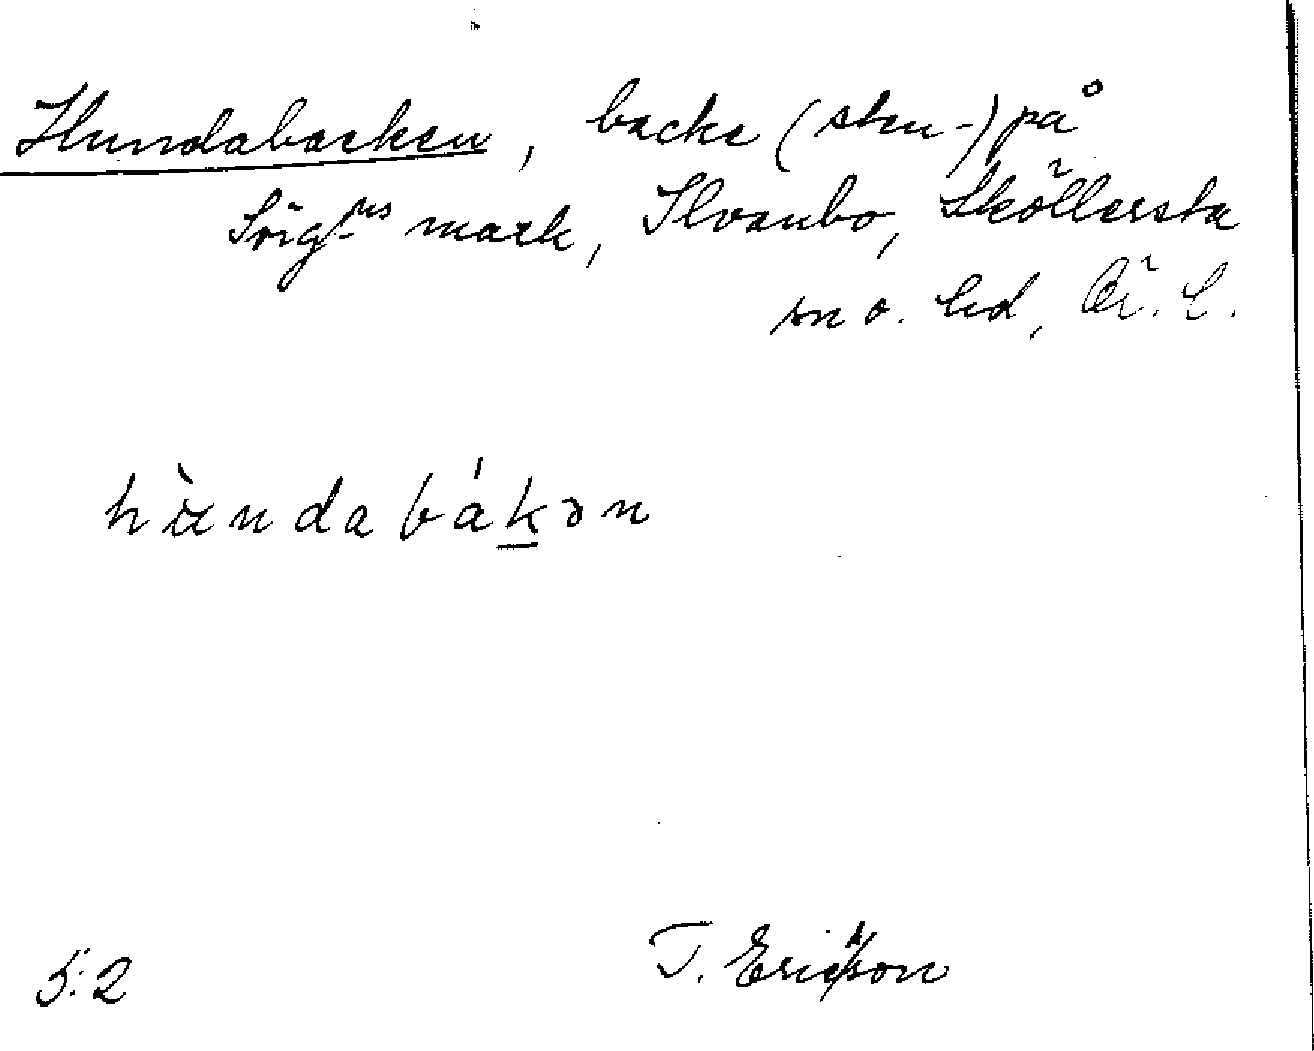 Hundabacken, backe (sten-) på
Sörg-ns mark, Ilvanbo, Sköllersta
sn o. hd, Ör. l.
hùndabákən
5:2
T. Ericsson